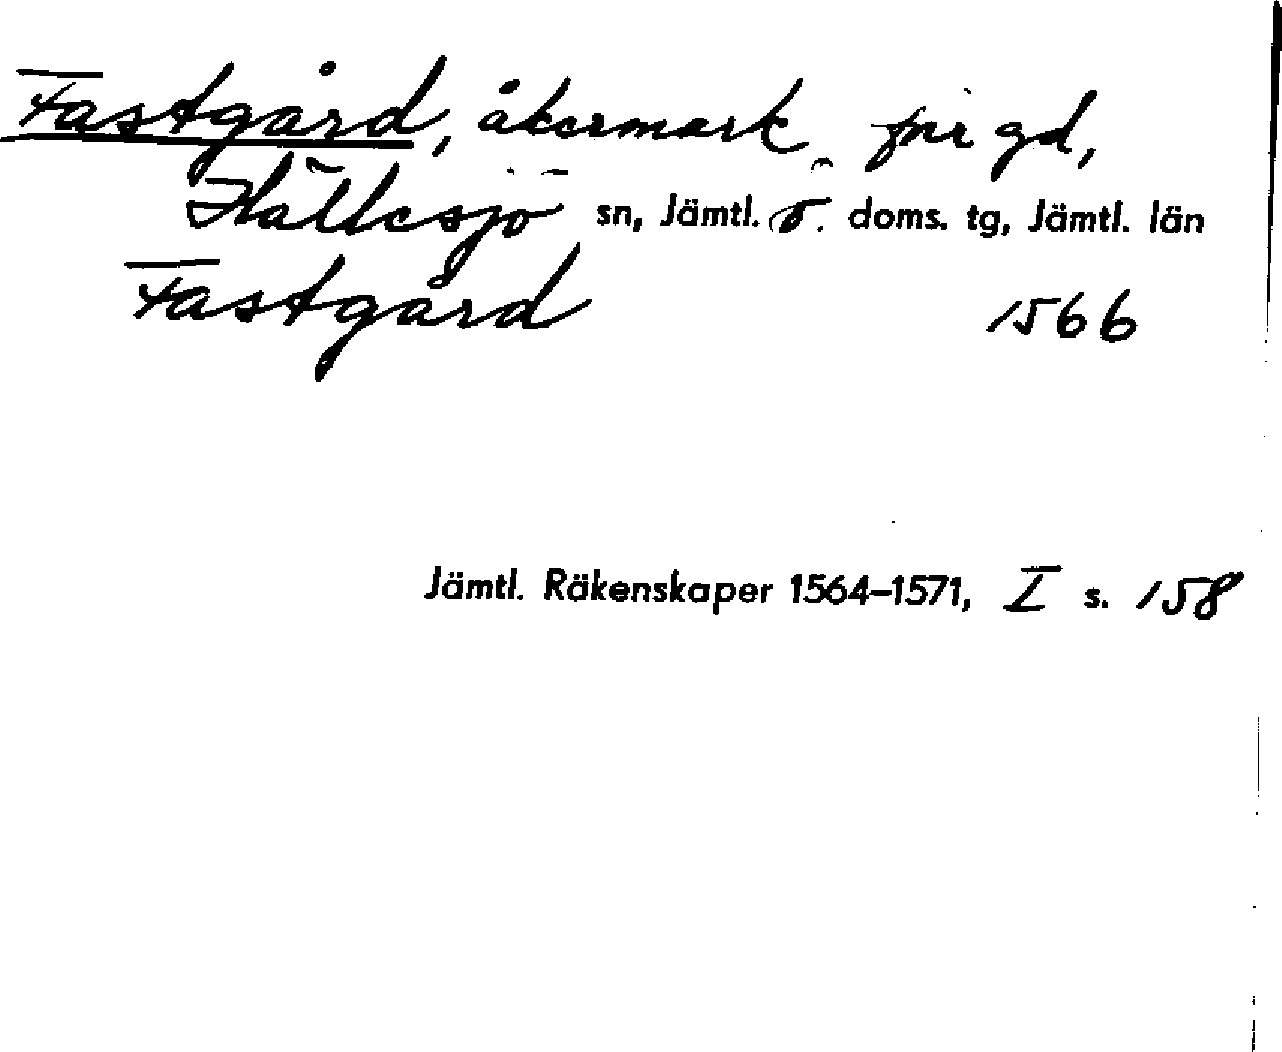 Fastgård, åkermark, förr gd,
Hällesjö sn, Jämtl. ö. doms. tg, Jämtl. län
Fastgård 1566
Jämtl. Räkenskaper 1564–1571, I s. 158